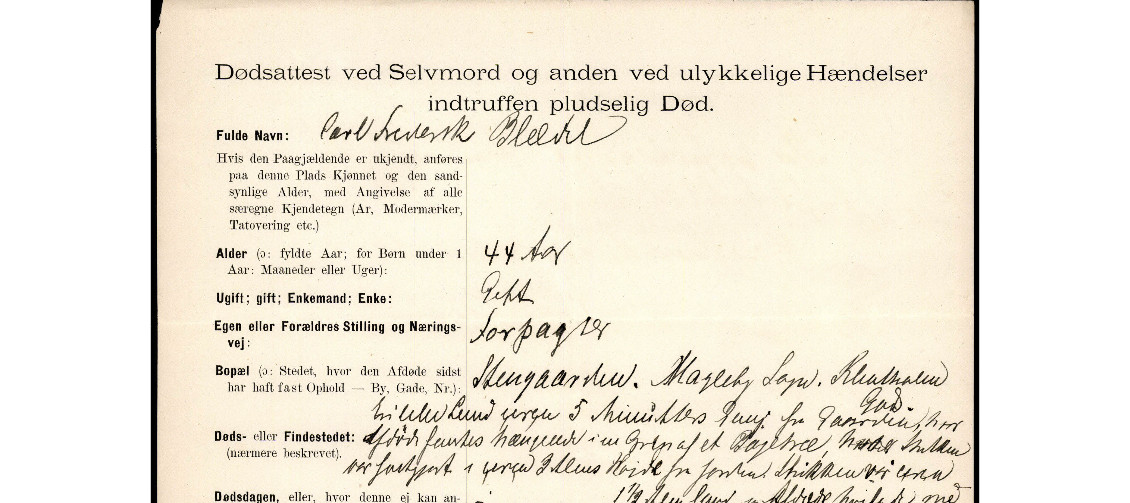 Dødsattest ved Selvmord og anden ved ulykkelige Hændelser
indtruffen pludselig Død.
Fulde Navn: Carl Frederik Bleedel
Hvis den Paagjældende er ukjendt, anføres
paa denne Plads Kjønnet og den sand-
synlige Alder, med Angivelse af alle
særegne Kjendetegn (Ar, Modermærker,
Tatovering etc.)
Alder (ɔ: fyldte Aar; for Børn under 1 44 Aar
Aar: Maaneder eller Uger):
Ugift; gift; Enkemand; Enke: Gift
Egen eller Forældres Stilling og Nærings- Forpagter
vej:
Bopæl (ɔ: Stedet, hvor den Afdøde sidst Stengaarden. Magleby Sogn.
har haft fast Ophold — By, Gade, Nr.):
God.
lille Lund 5 Minutters Gang fra Gaarden, hvor
Døds- eller Findestedet: Afdøde fandtes hængende i en Gren af et Bøgetræ, Strikken
(nærmere beskrevet). var fastgjort i 3 Alens Højde fra Jorden. Strikken var
Dødsdagen, eller, hvor denne ej kan an- 1½ Alen lang